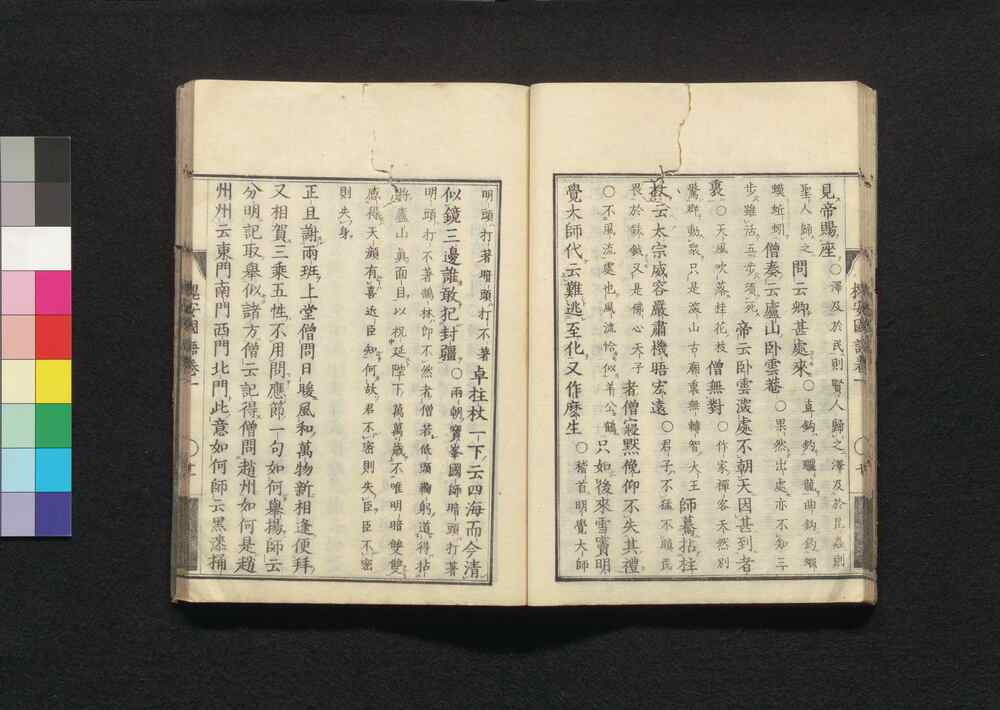 見帝賜座○澤及於民則賢人歸之澤及於昆蟲則
聖人歸之問云卿甚處來○直鉤釣驪龍曲鉤釣蝦
蟆蚯蚓僧奏云廬山臥雲菴○果然出處亦不知三
步雖活五步須死帝云臥雲深處不朝天因甚到者
裏○天風吹落桂花枝僧無對○作家禪客天然別
驚群動衆只是深山古廟裏無轉智大王師驀拈拄
杖云太宗威容嚴肅機語宏遠○君子不猛不顧民
畏於鈇鉞又是佛心天子者僧寂默俛仰不失其禮
○不風流處也風流恰似羊公鶴只如後來雪竇明
覺大師代云難逃至化又作麼生○稽首明覺大師
槐安國語卷一○十
明頭打著暗頭打不著卓拄杖一下云四海而今清
似鏡三邊誰敢犯封疆○兩朝寶峯國師暗頭打著
明頭打不著鵠林即不然者僧若低頭鞠躬道得拈
將廬山真面目以祝延陛下萬萬歲不唯明暗雙雙
感得天顏有喜近臣知何故君不密則失臣臣不密
則失身
正旦謝兩班上堂僧問日暖風和萬物新相逢便拜
又相賀三乘五性不用問應節一句如何舉揚師云
分明記取舉似諸方僧云記得僧問趙州如何是趙
州州云東門南門西門北門此意如何師云黑漆桶
槐安國語卷一○十一